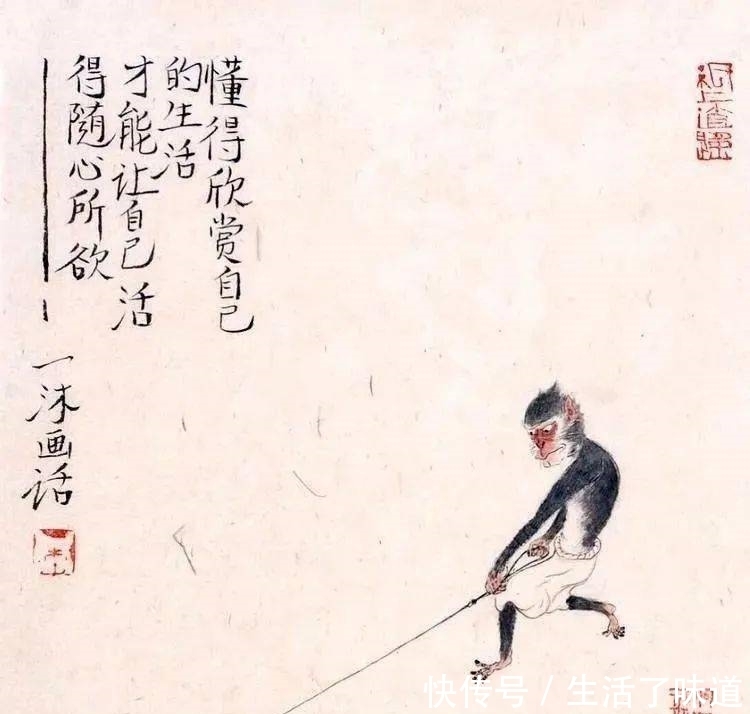 懂得欣赏自己
的生活
才能让自己活
得随心所欲
一沐画话
快传号 / 生活了味道